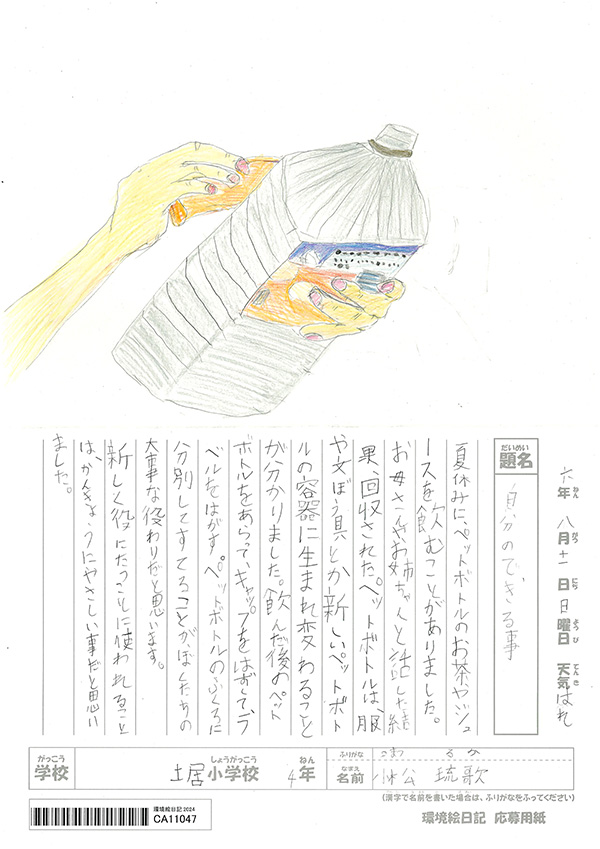 六年 八月十一日 日曜日 天気 はれ
ねん がつ にち ようび てんき
だいめい
題名
自分のできる事
夏休みに、ペットボトルのお茶やジュ
ースを飲むことがありました。
お母さんやお姉ちゃんと話した結
果、回収されたペットボトルは、服
や文ぼう具とか新しいペットボト
ルの容器に生まれ変わること
が分かりました。飲んだ後のペット
ボトルをあらって、キャップをはずして、ラ
ベルをはがす。ペットボトルのふくろに
分別してすてることがぼくたちの
大事な役わりだと思います。
新しく役にたつことに使われること
は、かんきょうにやさしい事だと思い
ました。
がっこう しょうがっこう ねん ふりがな こまつ るか
学校 土居小学校 4年 なまえ 名前 小松 琉歌
(漢字で名前を書いた場合は、ふりがなをふってください)
環境絵日記 2024
CA11047
環境絵日記 応募用紙